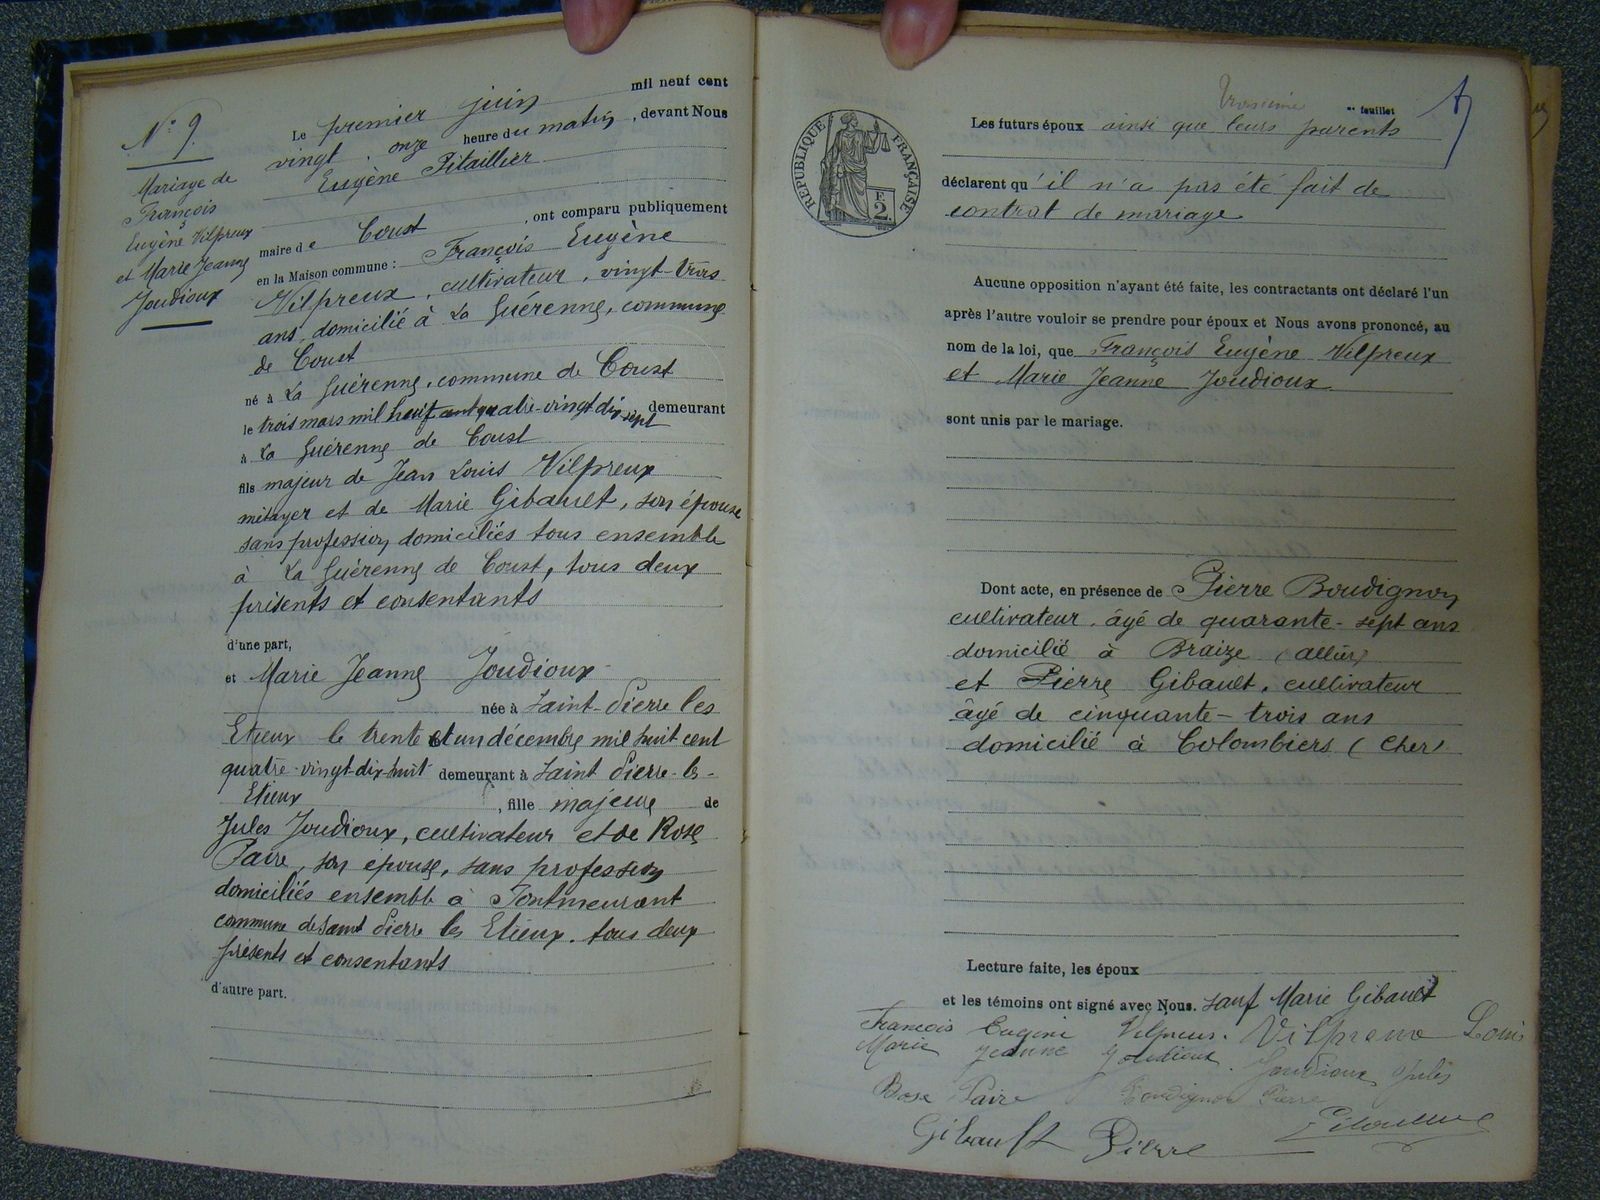 N° 9
Mariage de
François
Eugène Vilpreux
et Marie Jeanne
Joudioux
Le premier juin mil neuf cent
vingt, onze heure du matin, devant Nous
Eugène Pitaillier
maire de Coust, ont comparu publiquement
en la Maison commune : François Eugène
Vilpreux, cultivateur, vingt-trois
ans, domicilié à La Guérenne, commune
de Coust
né à La Guérenne, commune de Coust
le trois mars mil huit cent quatre-vingt dix sept demeurant
à La Guérenne de Coust
fils majeur de Jean Louis Vilpreux
métayer et de Marie Gibault, son épouse
sans profession domiciliés tous ensemble
à La Guérenne de Coust, tous deux
présents et consentants
d'une part,
et Marie Jeanne Joudioux
née à Saint-Pierre les
Etieux le trente et un décembre mil huit cent
quatre-vingt-dix-huit demeurant à Saint Pierre-les-
Etieux, fille majeure de
Jules Joudioux, cultivateur et de Rose
Paire, son épouse, sans profession
domiciliés ensemble à Pontmeurant
commune de Saint Pierre les Etieux, tous deux
présents et consentants
d'autre part.
troisième feuillet
REPUBLIQUE FRANÇAISE
2
Les futurs époux ainsi que leurs parents
déclarent qu'il n'a pas été fait de
contrat de mariage
Aucune opposition n'ayant été faite, les contractants ont déclaré l'un
après l'autre vouloir se prendre pour époux et Nous avons prononcé, au
nom de la loi, que François Eugène Vilpreux
et Marie Jeanne Joudioux
sont unis par le mariage.
Dont acte, en présence de Pierre Boudignon
cultivateur, âgé de quarante-sept ans
domicilié à Braize (Allier)
et Pierre Gibault, cultivateur
âgé de cinquante-trois ans
domicilié à Colombiers (Cher)
Lecture faite, les époux
et les témoins ont signé avec Nous. sauf Marie Gibault
Francois Eugene Vilpreux. Vilpreux Louis
Marie Jeanne Joudioux. Joudioux Jules
Rose Paire Boudignon Pierre
Gibault Pierre